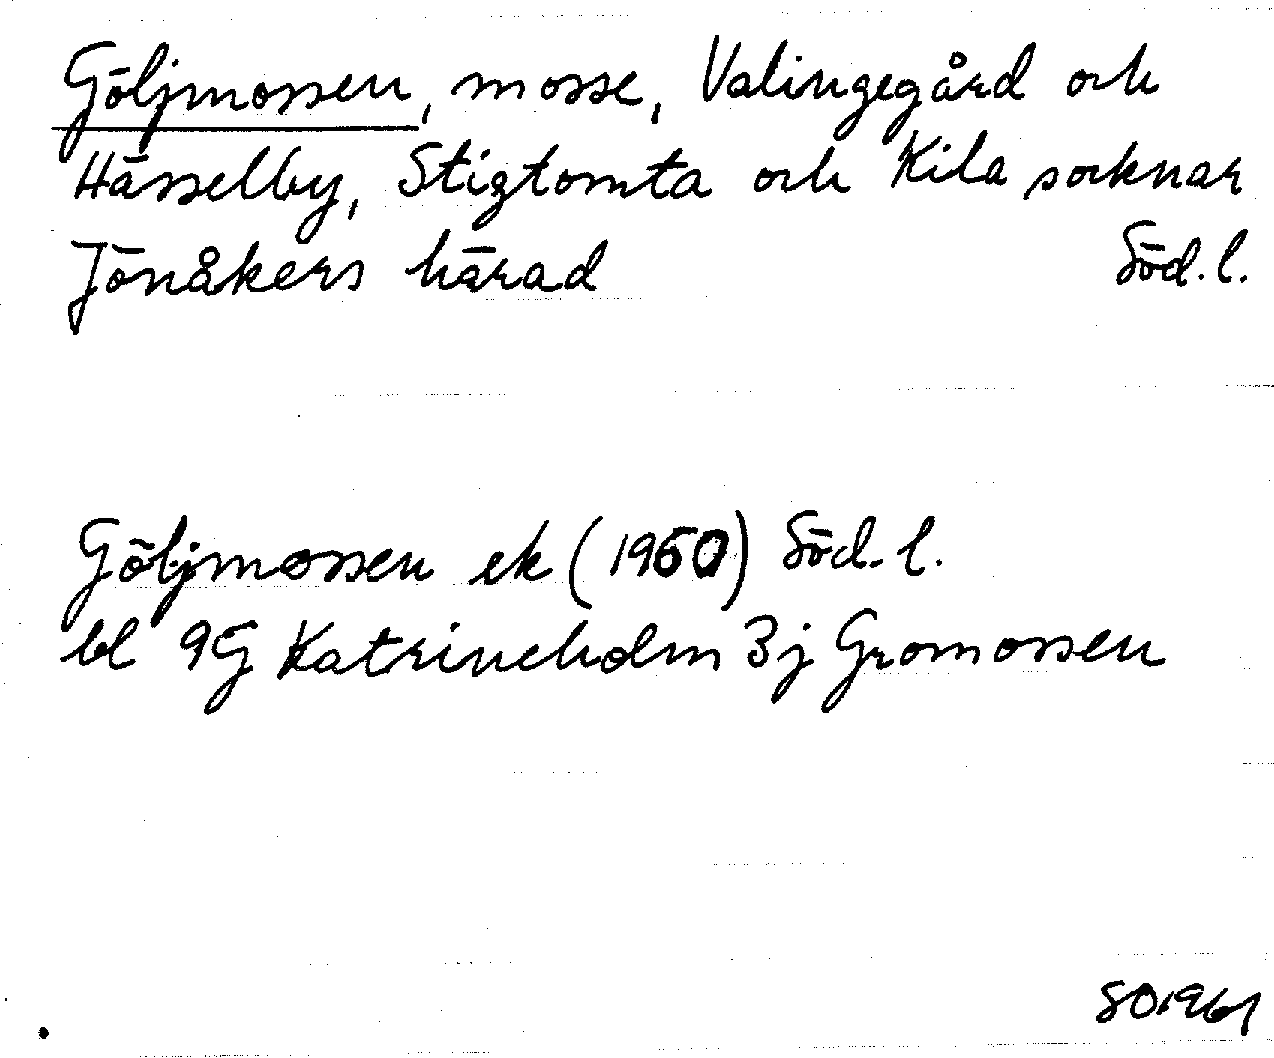 Göljmossen, mosse, Valingegård och
Hässelby, Stigtomta och Kila socknar
Jönåkers härad Söd. l.
Göljmossen ek (1960) Söd. l.
bl 9G Katrineholm 3j Gromossen
SO 1961